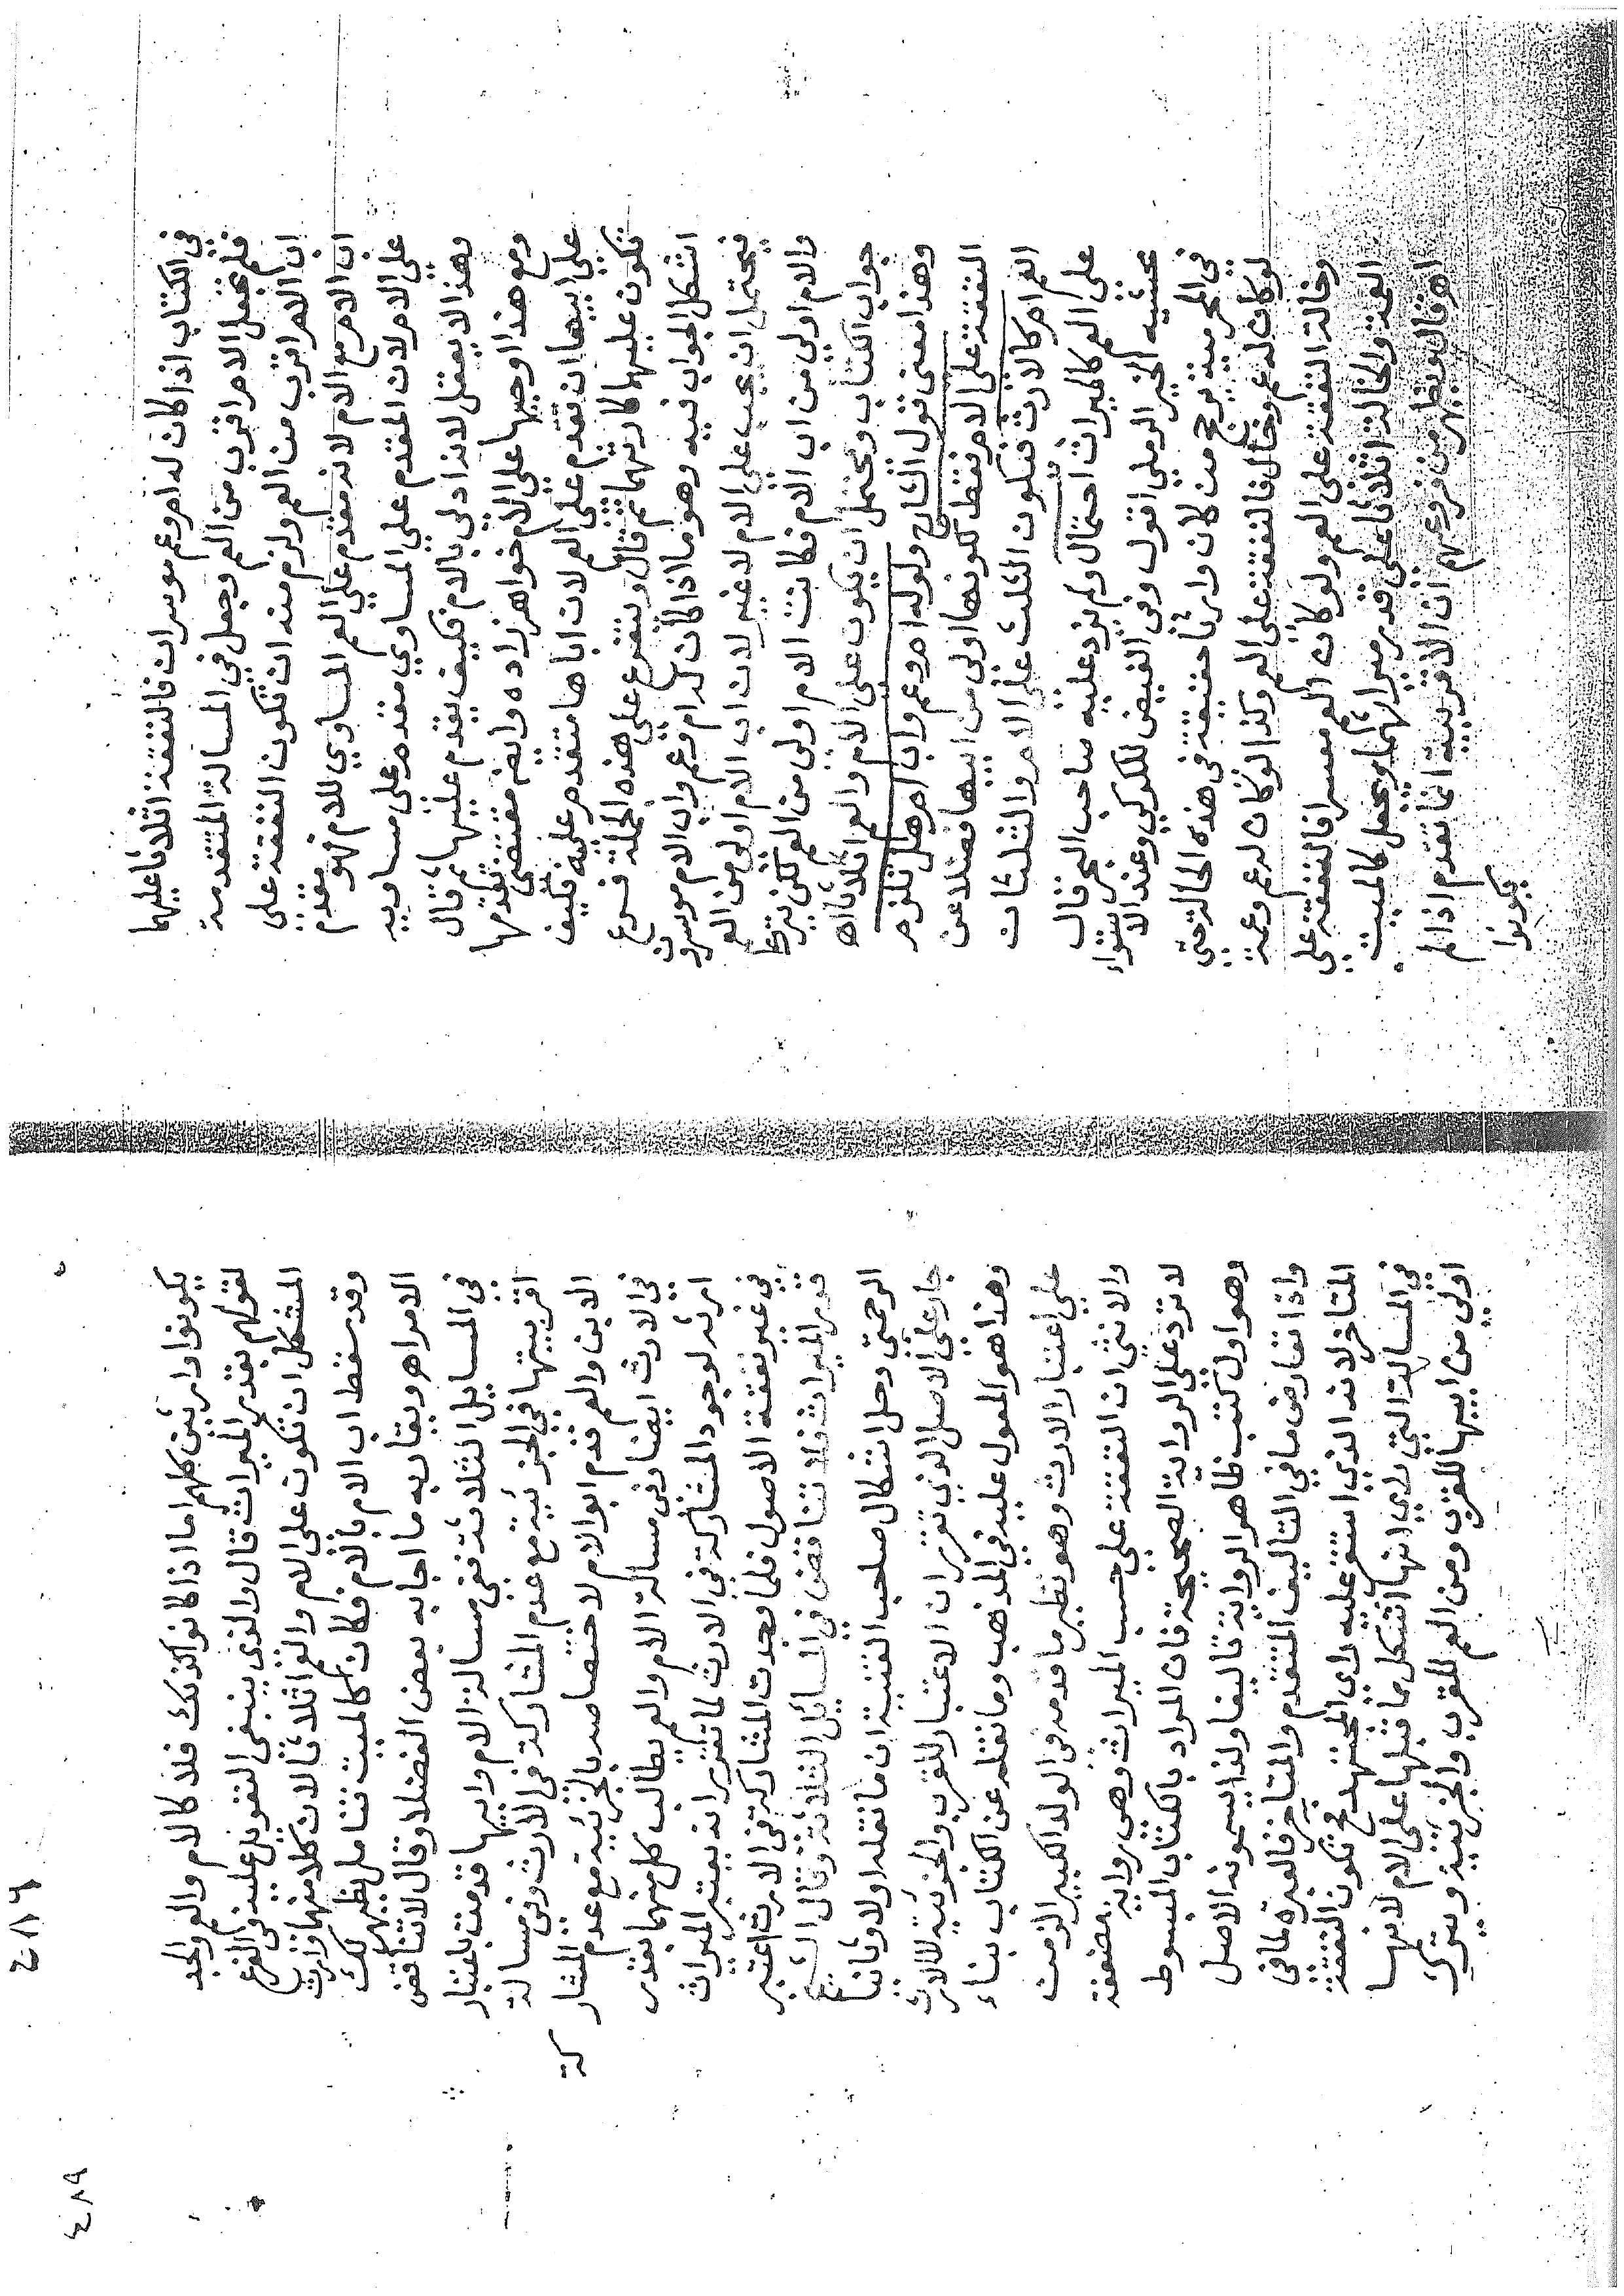 في الكتاب اذا كان له ام وعم موسران فالنفقة اثلاثا عليهما
فلم يجعل الام اقرب من العم وجعل في المسالة المتقدمة
ان الام اقرب من العم ولزم منه ان تكون النفقة على
اب الام مع الام لانه مقدم على العم المساوي للام فهو مقدم
على الام لان المقدم على المساوي مقدم على مساويه
وهذا لا يعقل لانه ادلى بالام فكيف يقدم عليها ثم قال
ومع هذا اوجبها على الام خواهر زاده وايضه مقتضى تقدمها
على ابيها ان تقدم على العم لان اباها متقدم عليه فكيف
تكون عليهما كارثهما ثم قال ويتفرع على هذه الجملة فرع
اشكل الجواب فيه وهو ما اذا كان له ام وعم واب الام موسرون
فيحتمل ان يجب على الام لا غير لان اب الام اولى من العم
والام اولى من اب الام فكانت الام اولى من العم لكن يترك
جواب الكتاب ويحتمل ان يكون على الام والعم اثلاثا اه
وهذا معنى قول الشارح ولو له ام وعم واب ام هل تلزم
النفقة على الام فقط لكونها اولى من ابيها فضلا عن
العم ام كالارث فتكون الثلث على الام والثلثان
على العم كالميراث احتمال ولم يزد عليه صاحب البحر قال
محشيه الخير الرملي اقول وفي الفيض للكركي وعند الاستواء
في المحرمية يرجح من كان وارثا حقيقة في هذه الحالة حتى
لو كان له عم وخال فالنفقة على العم وكذا لو كان له عم وعمة
وخالة النفقة على العم ولو كان العم معسرا فالنفقة على
العمة والخالة اثلاثا على قدر ميراثهما ويجعل كالميت
اه قال ويظهر من فروعهم ان الاقربية انما تقدم اذا لم
يكونوا
٤٨٦
٤٨٩
يكونوا وارثين كلهم اما اذا كانو اكذلك فلا كالام والعم والجد
لقولهم بقدر الميراث قال والذي ينبغي التعويل عليه في الفرع
المشكل ان تكون على الام والعم اثلاثا لان كلا منهما وارث
وقد سقط اب الام بالام فكان كالميت فتامل يظهر لك
الامر اهـ ويقاربه ما اجاب به بعض الفضلا وقال لا تناقض
في المسايل الثلاثة ففي مسالة الام وابيها قدمت باعتبار
اقربيتها في الجزئية مع عدم المشاركة في الارث وفي مسالة
الابن والعم قدم ابو الام لاختصاصه بالجزئية مع عدم المشاركة
في الارث ايضا وفي مسالة الام والعم يطالب كل منهما بقدر
ارثه لوجود المشاركة في الارث لما تقرر انه يعتبر الميراث
في غير نفقة الاصول فلما وجدت المشاركة في الارث اعتبر
قدر الميراث فلا تناقض في المسائل الثلاثة وقال الشيخ
الرحمتي وحل اشكال صاحب القنية ان ما نقله اولا وثانيا
جار على الاصل الذي تقرر ان الاعتبار للقرب والجزئية لا الارث
وهذا هو المعول عليه في المذهب وما نقله عن الكتاب بناء
على اعتبار الارث وهو نظير ما قدمه في الولد الكبير الزمن
والانثى ان النفقة على حسب الميراث وهي رواية مضعفة
لا ترد على الرواية الصحيحة فان المراد بالكتاب المبسوط
وهو اول كتب ظاهر الرواية تاليفا ولذا يسمونه الاصل
واذا تعارض ما في التاليف المتقدم والمتاخر فالعبرة لما في
المتاخر لانه الذي استقر عليه راي المجتهد فح تكون النفقة
في المسالة التي راي انها اشكل مما قبلها على الام لانها
اولى من ابيها للقرب ومن العم للقرب والجزئية ويترك